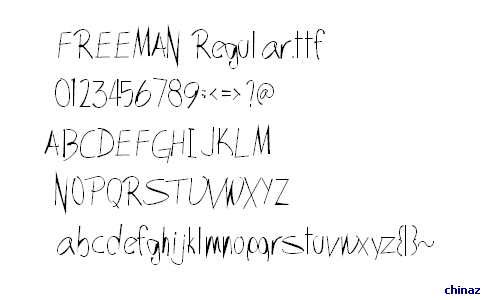 FREEMAN Regular.ttf
0123456789:;<=>?@
ABCDEFGHIJKLM
NOPQRSTUVWXYZ
abcdefghijklmnopqrstuvwxyz{|}~
chinaz